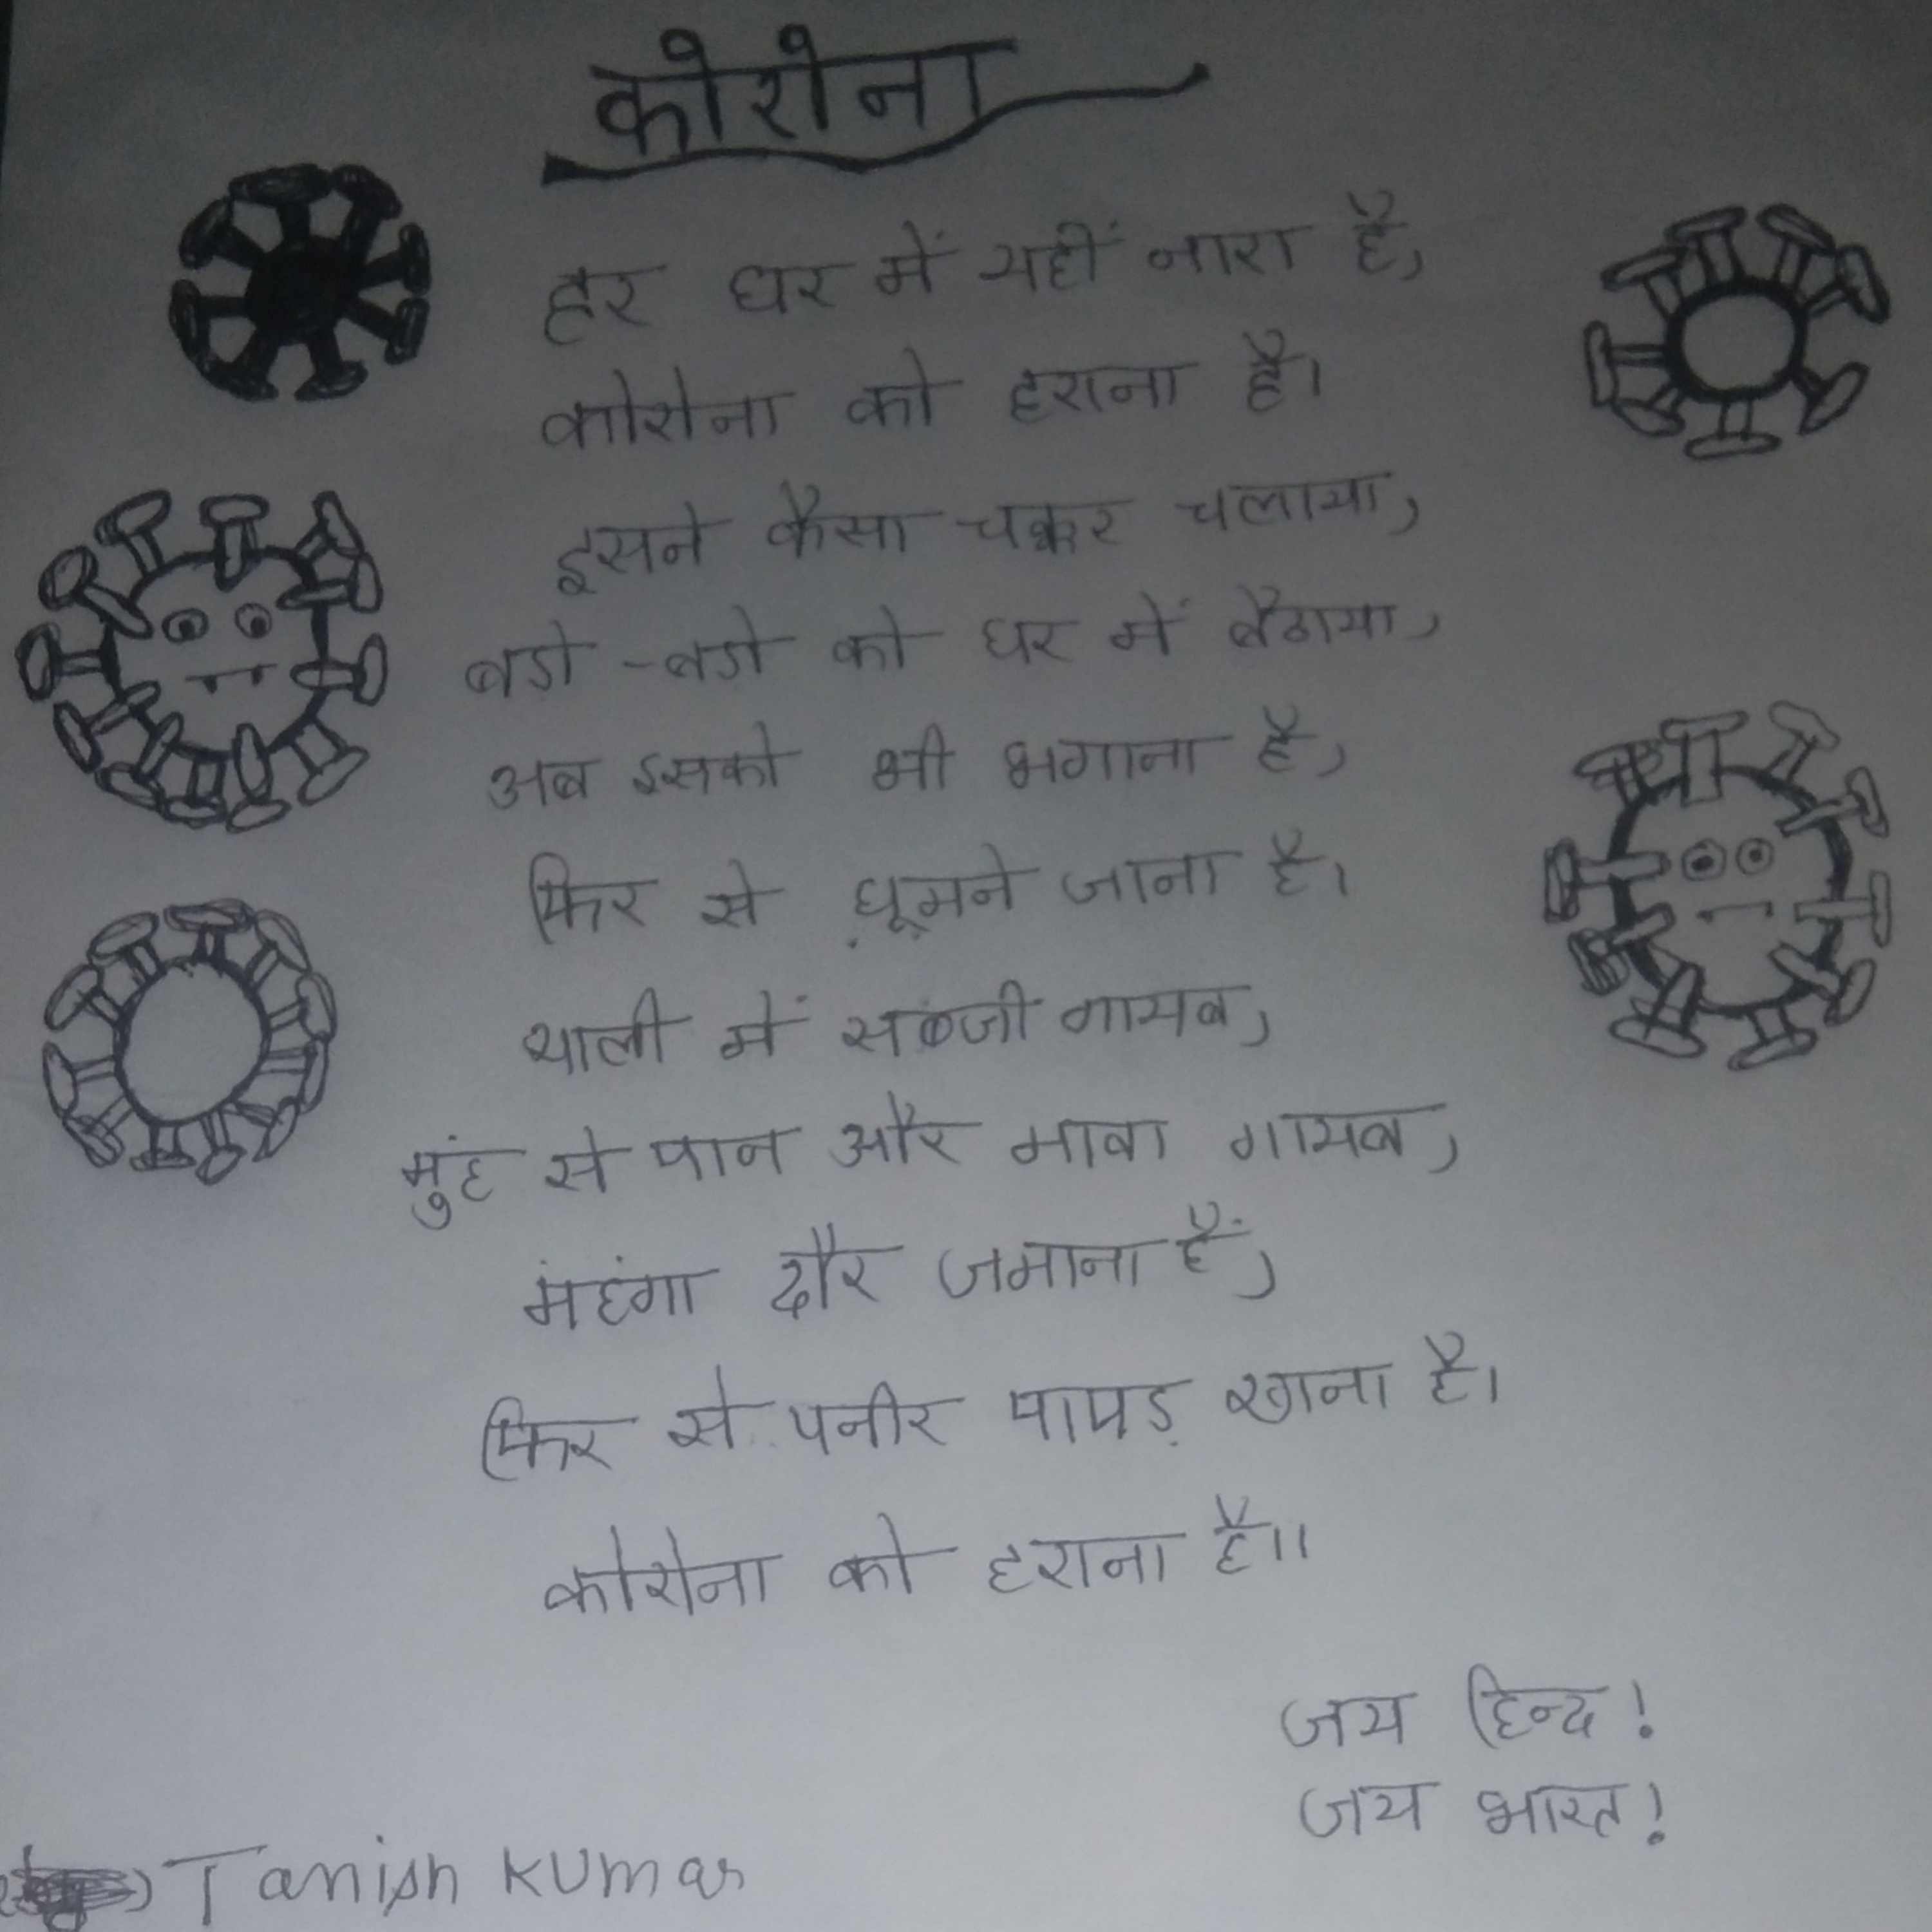 कोरोना
हर घर में यहीं नारा है,
कोरोना को हराना है।
इसने कैसा चक्कर चलाया,
बडो -बडो को घर में बैठाया,
अब इसको भी भगाना है,
फिर से घूमने जाना है।
थाली में सब्जी गायब,
मुंह से पान और मावा गायब,
मंहंगा दौर जमाना हैं,
फिर से पनीर पापड़ खाना है।
कोरोना को हराना है।।
जय हिन्द!
जय भारत!
Tanish Kumar